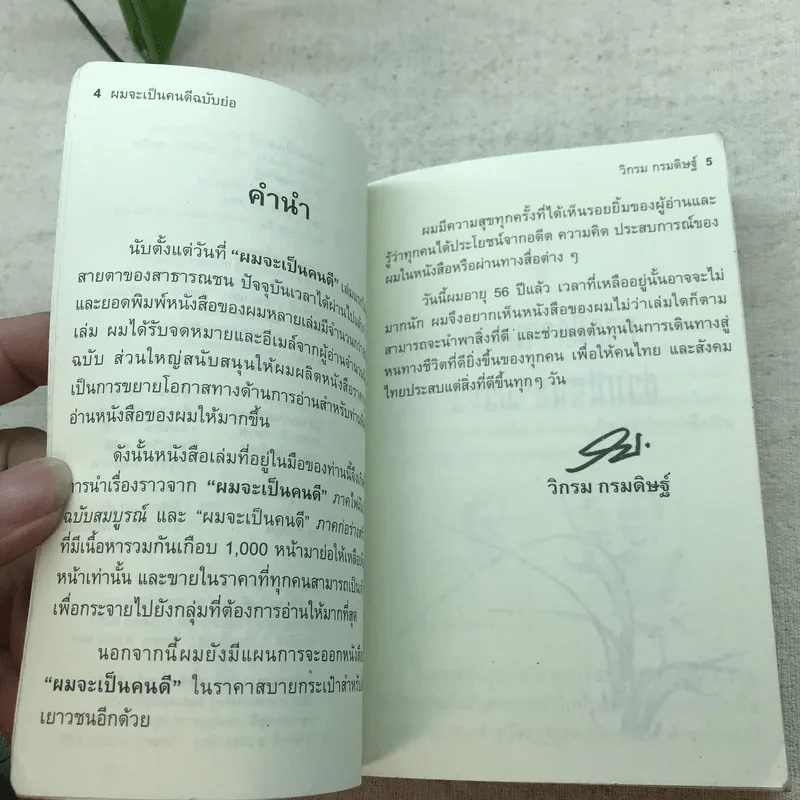 4 ผมจะเป็นคนดีฉบับย่อ
คำนำ
นับตั้งแต่วันที่ “ผมจะเป็นคนดี”
สายตาของสาธารณชน ปัจจุบันเวลาได้ผ่านไปแล้ว
และยอดพิมพ์หนังสือของผมหลายเล่มมีจำนวนกว่า
เล่ม ผมได้รับจดหมายและอีเมล์จากผู้อ่านจำนวน
ฉบับ ส่วนใหญ่สนับสนุนให้ผมผลิตหนังสือ
เป็นการขยายโอกาสทางด้านการอ่านสำหรับ
อ่านหนังสือของผมให้มากขึ้น
ดังนั้นหนังสือเล่มที่อยู่ในมือของท่านนี้
การนำเรื่องราวจาก “ผมจะเป็นคนดี”
ฉบับสมบูรณ์ และ “ผมจะเป็นคนดี”
ที่มีเนื้อหารวมกันเกือบ 1,000 หน้ามาย่อให้เหลือ
หน้าเท่านั้น และขายในราคาที่ทุกคนสามารถ
เพื่อกระจายไปยังกลุ่มที่ต้องการอ่านให้มากที่สุด
นอกจากนี้ผมยังมีแผนการจะออก
“ผมจะเป็นคนดี” ในราคาสบายกระเป๋าสำหรับ
เยาวชนอีกด้วย
วิกรม กรมดิษฐ์ 5
ผมมีความสุขทุกครั้งที่ได้เห็นรอยยิ้มของผู้อ่านและ
รู้ว่าทุกคนได้ประโยชน์จากอดีต ความคิด ประสบการณ์ของ
ผมในหนังสือหรือผ่านทางสื่อต่าง ๆ
วันนี้ผมอายุ 56 ปีแล้ว เวลาที่เหลืออยู่นั้นอาจจะไม่
มากนัก ผมจึงอยากเห็นหนังสือของผมไม่ว่าเล่มใดก็ตาม
สามารถจะนำพาสิ่งที่ดี และช่วยลดต้นทุนในการเดินทางสู่
หนทางชีวิตที่ดียิ่งขึ้นของทุกคน เพื่อให้คนไทย และสังคม
ไทยประสบแต่สิ่งที่ดีขึ้นทุกๆ วัน
วิกรม กรมดิษฐ์